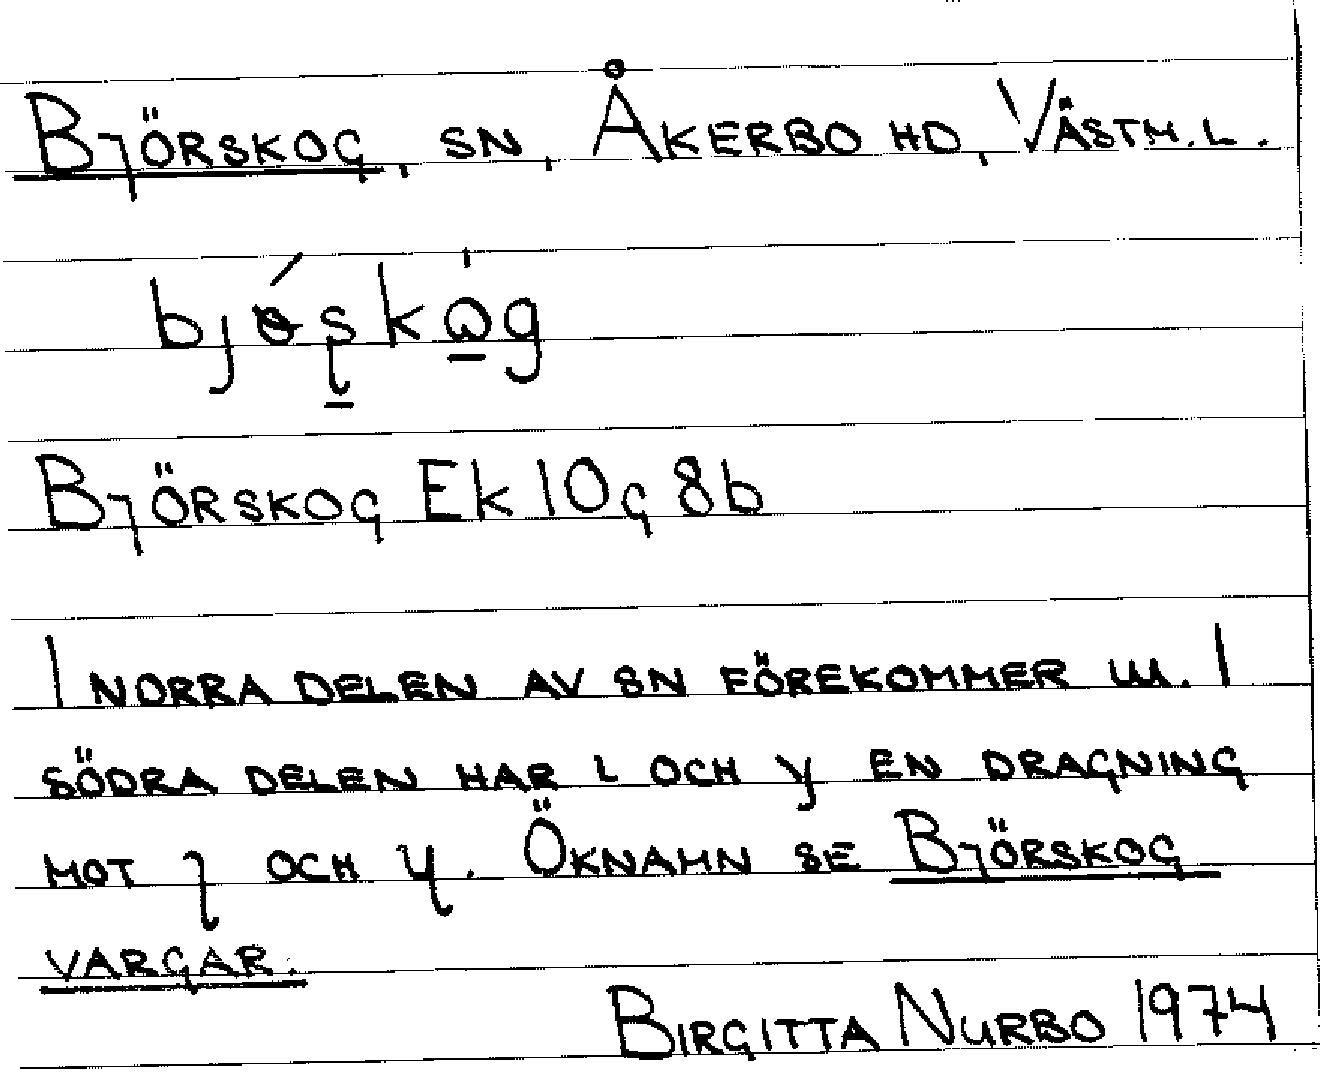 Björskog, sn, Åkerbo hd, Västm.l.
Björskog Ek 10g 8b
I norra delen av sn förekommer ɯ. I
södra delen har ɩ och y en dragning
mot ʅ och ʮ. Öknamn se Björskog
vargar.
Birgitta Nurbo 1974